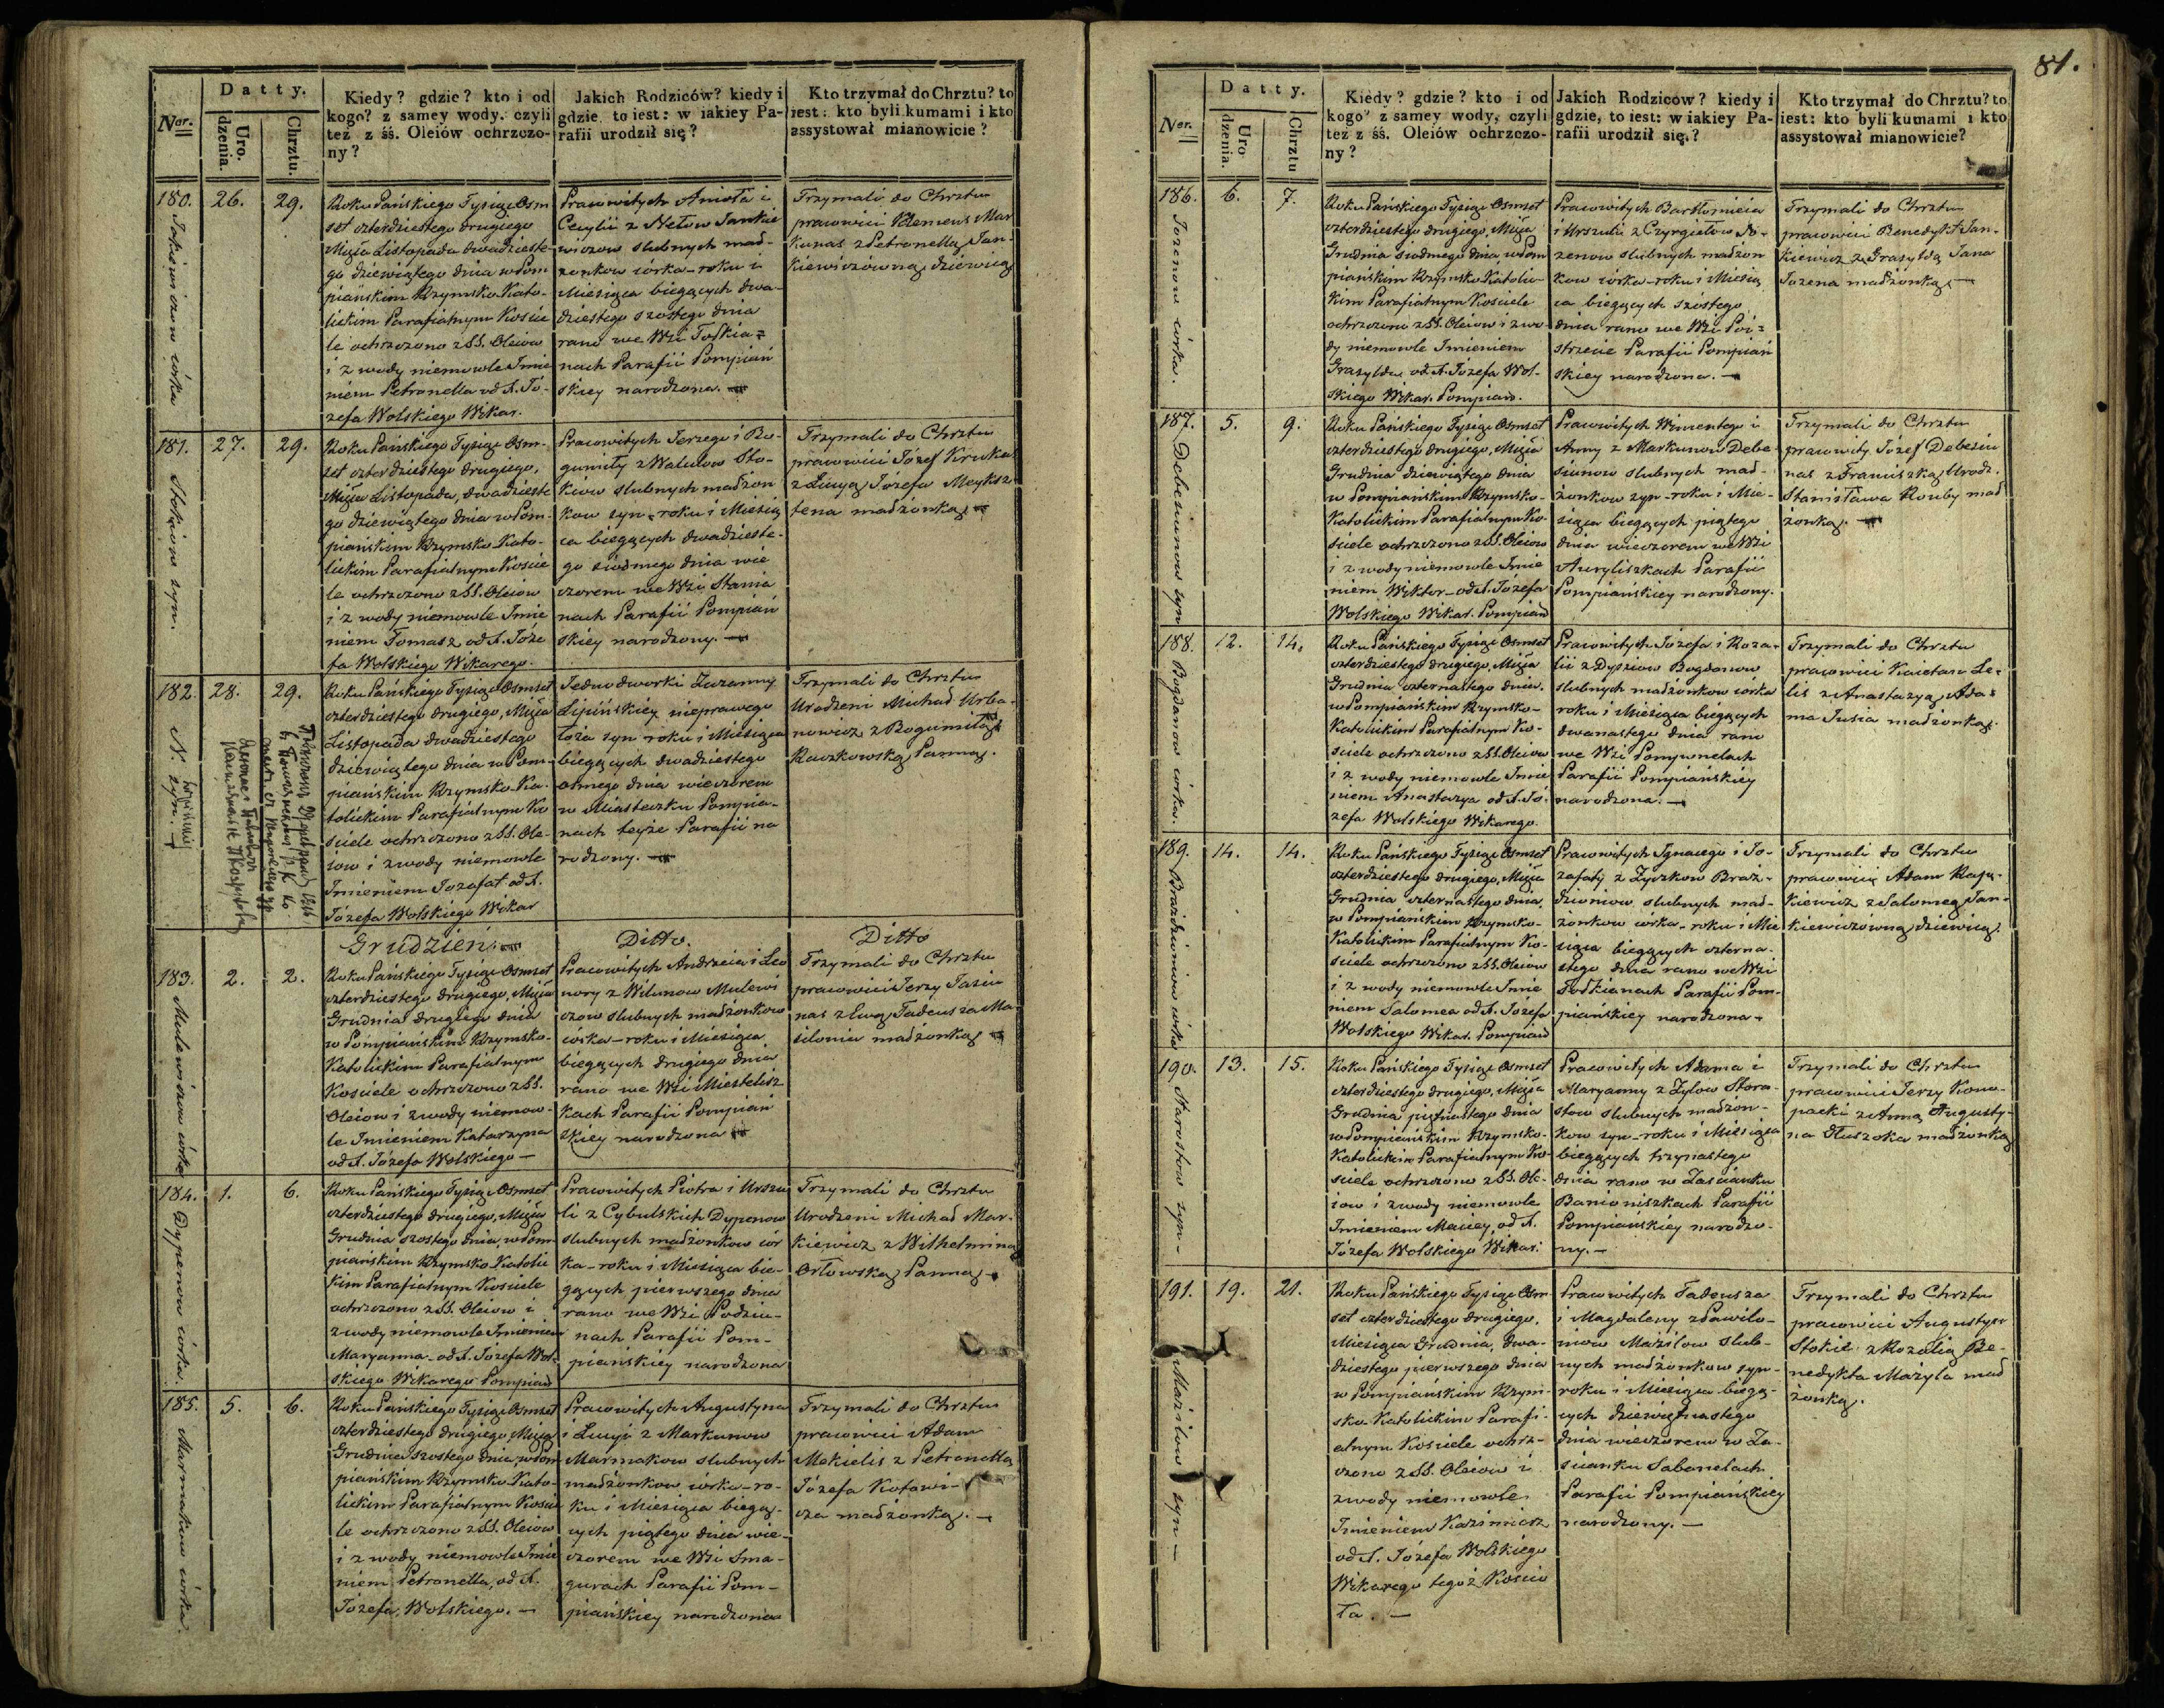 Nor.
Datty.
Uro.
dzenia.
Chrztu.
Kiedy? gdzie? kto i od
kogo? z samey wody, czyli
też z śś. Oleiów ochrzczo-
ny?
Jakich Rodziców? kiedy i
gdzie, to iest: w iakiey Pa-
rafii urodził się?
Kto trzymał do Chrztu? to
iest: kto byli kumami i kto
assystował mianowicie?
180.
26.
29.
Roku Pańskiego Tysiąc Osm
set czterdziestego drugiego
Msca Listopada dwadzieste-
go dziewiątego dnia w Pom
piańskim Rzymsko-Kato-
lickim Parafialnym Koscie
le ochrzczono z SS. Oleiow
i z wody niemowle Imie
niem Petronella od X. Jó-
zefa Wolskiego Wikar.
Pracowitych Anioła i
Cecylii z Netow Jankie
wiczow slubnych mad-
zonkow córka - roku i
Miesiąca biegących dwa-
dziestego szóstego dnia
rano we Wsi
nach Parafii Pompiań
skiey narodzona.
Trzymali do Chrztu
pracowici Klemens Mar
kunas z Petronellą Jan-
kiewiczówną dziewicą
181.
Stokiow syn.
27.
29.
Roku Pańskiego Tysiąc Osm-
set czterdziestego drugiego,
Msca Listopada, dwadzieste
go dziewiątego dnia w Pom-
piańskim Rzymsko-Kato-
lickim Parafialnym Koscie
le ochrzczono z SS. Oleiow
i z wody niemowle Imie
niem Tomasz, od X. Józe
fa Wolskiego Wikarego.
Pracowitych Jerzego i Bo-
gumiły z Watulow Sto-
kiow slubnych madżon
kow syn, roku i Miesią
ca biegących dwadzieste-
go siódmego dnia wie
czorem we Wsi Stania
nach Parafii Pompiań
skiey narodzony.
Trzymali do Chrztu
pracowici Józef Kruka
z Lucyą Jozefa Meyksz
tena madżonką
182.
N. syn.
28.
29.
Roku Pańskiego Tysiąc Osmset
czterdziestego drugiego, Msca
Listopada dwadziestego
dziewiątego dnia w Pom-
piańskim Rzymsko-Ka-
tolickim Parafialnym Ko
sciele ochrzczono z SS. Ole-
iow i z wody niemowle
Imieniem Jozafat od X.
Józefa Wolskiego Wikar
Jednodworki Zuzanny
Lipińskiey nieprawego
łoża syn roku i Miesiąca
biegących dwadziestego
osmego dnia wieczorem
w Miasteczku Pompia-
nach teyże Parafii na
rodzony.
Trzymali do Chrztu
Urodzeni Michał Urba-
nowicz z Bogumiłą
Raczkowską Panną.
Grudzień.
Ditto.
Ditto
183.
Mulewiczow córka
2.
2.
Roku Pańskiego Tysiąc Osmset
czterdziestego drugiego, Msca
Grudnia drugiego dnia
w Pompiańskim Rzymsko-
Katolickim Parafialnym
Kosciele ochrzczono z SS.
Oleiow i z wody niemow-
le Imieniem Katarzyna
od X. Józefa Wolskiego —
Pracowitych Andrzeia i Leo
nory z Wilunow Mulewi
czow slubnych madżonkow
córka - roku i Miesiąca
biegących drugiego dnia
rano we Wsi Miestelisz
kach Parafii Pompiań
skiey narodzona
Trzymali do Chrztu
pracowici Jerzy Jasiu
nas z Ewą Tadeusza Ma
ilonia madżonką
184.
Dypenow córka.
1.
6.
Roku Pańskiego Tysiąc Osmset
czterdziestego drugiego, Msca
Grudnia szostego dnia, w Pom
piańskim Rzymsko Katolic
kim Parafialnym Kosciele
ochrzczono z SS. Oleiow i
z wody niemowle Imieniem
Maryanna - od X. Józefa Wol-
skiego Wikarego Pompiań
Pracowitych Piotra i Urszu
li z Cybulskich Dypenow
slubnych madżonkow cór
ka - roku i Miesiąca bie-
gących pierwszego dnia
rano we Wsi Podziu-
nach Parafii Pom-
piańskiey narodzona
Trzymali do Chrztu
Urodzeni Michał Mar-
kiewicz z Wilhelminą
Orłowską Panną
185.
Marmakow córka.
5.
6.
Roku Pańskiego Tysiąc Osmset
czterdziestego drugiego Msca
Grudnia szostego dnia, w Pom
piańskim Rzymsko-Kato-
lickim Parafialnym Koscie
le ochrzczono z SS. Oleiow
i z wody niemowle Imie
niem Petronella, od X.
Józefa Wolskiego. —
Pracowitych Augustyna
i Lucyi z Markunow
Marmakow slubnych
madżonkow córka - ro-
ku i Miesiąca biegą-
cych piątego dnia wie-
czorem we Wsi Sma-
gurach Parafii Pom-
piańskiey narodzona
Trzymali do Chrztu
pracowici Adam
Mekielis z Petronellą
Józefa Kotowi-
cza madżonką. —
81.
Nor.
Datty.
Uro
dzenia.
Chrztu
Kiedy? gdzie? kto i od
kogo? z samey wody, czyli
też z śś. Oleiów ochrzczo-
ny?
Jakich Rodziców? kiedy i
gdzie, to iest: w iakiey Pa-
rafii urodził się?
Kto trzymał do Chrztu? to
iest: kto byli kumami i kto
assystował mianowicie?
186.
Jozenow córka.
6.
7.
Roku Pańskiego Tysiąc Osmset
czterdziestego drugiego, Msca
Grudnia siodmego dnia w Pom
piańskim Rzymsko Katolic-
kim Parafialnym Kosciele
ochrzczono z SS. Oleiow i z wo
dy niemowle Imieniem
Grasylda, od X. Józefa Wol-
skiego Wikar. Pompian.
Pracowitych Bartłomieia
i Urszuli z Czyrgielow Jo-
zenow slubnych madżon
kow córka - roku i Miesią
ca biegących szóstego
dnia rano we Wsi Poi-
strzecie Parafii Pompiań
skiey narodzona. —
Trzymali do Chrztu
pracowici Benedykt Jan-
kiewicz z Grasyldą Jana
Jozena madżonką —
187.
Debesiunow syn
5.
9.
Roku Pańskiego Tysiąc Osmset
czterdziestego drugiego, Msca
Grudnia dziewiątego dnia
w Pompiańskim Rzymsko-
Katolickim Parafialnym Ko-
sciele ochrzczono z SS. Oleiow
i z wody niemowle Imie
niem Wiktor - od X. Józefa
Wolskiego Wikar. Pompiań
Pracowitych Wincentego i
Anny z Markunow Debe
siunow slubnych mad-
żonkow syn - roku i Mie-
siąca biegących piątego
dnia wieczorem we Wsi
Auryliszkach Parafii
Pompiańskiey narodzony.
Trzymali do Chrztu
pracowity Józef Debesiu
nas z Franciszką Urodz.
Stanisława Rouby mad
żonką. —
188.
Bogdanow córka.
12.
14.
Roku Pańskiego Tysiąc Osmset
czterdziestego drugiego, Msca
Grudnia czternastego dnia.
w Pompiańskim Rzymsko-
Katolickim Parafialnym Ko-
sciele ochrzczono z SS. Oleiow
i z wody niemowle Imie
niem Anastazya od X. Jó-
zefa Wolskiego Wikarego.
Pracowitych Józefa i Roza-
lii z Dysziow Bogdanow
slubnych madżonkow córka
roku i Miesiąca biegących
dwunastego dnia rano
we Wsi Pompwnelach
Parafii Pompiańskiey
narodzona. —
Trzymali do Chrztu
pracowici Kaietan Le-
lis z Anastazyą Ada-
ma Jusia madżonką.
189.
14.
14.
Roku Pańskiego Tysiąc Osmset
czterdziestego drugiego, Msca
Grudnia czternastego dnia,
w Pompiańskim Rzymsko-
Katolickim Parafialnym Ko-
sciele ochrzczono z SS. Oleiow
i z wody niemowle Imie
niem Salomea od X. Józefa
Wolskiego Wikar. Pompiań
Pracowitych Ignacego i Jo-
zafaty z Zyczkow Braz-
dziuniow slubnych mad-
żonkow córka - roku i Mie
siąca biegących czterna-
stego dnia rano we Wsi
Parafii Pom-
piańskiey narodzona -
Trzymali do Chrztu
pracowici Adam
kiewicz z Salomeą Jan-
kiewiczówną dziewicą.
190.
Starostow syn -
13.
15.
Roku Pańskiego Tysiąc Osmset
czterdziestego drugiego, Msca
Grudnia piętnastego dnia
w Pompiańskim Rzymsko-
Katolickim Parafialnym Ko-
sciele ochrzczono z SS. Ole-
iow i z wody niemowle
Imieniem Maciey, od X.
Józefa Wolskiego Wikar:
Pracowitych Adama i
Maryanny z Zylow Staro-
stow slubnych madżon-
kow syn - roku i Miesiąca
biegących trzynastego
dnia rano w Zascianku
Banioniszkach Parafii
Pompiańskiey narodzo-
ny. —
Trzymali do Chrztu
pracowici Jerzy Kono-
packi z Anną Augusty-
na Dłuszoka madżonką
191.
Mażilow syn —
19.
21.
Roku Pańskiego Tysiąc Osm
set czterdziestego drugiego,
Miesiąca Grudnia, dwa-
dziestego pierwszego dnia
w Pompiańskim Rzym-
sko-Katolickim Parafi-
alnym Kosciele ochrz-
czono z SS. Oleiow i
z wody niemowle
Imieniem Kazimierz
od X. Józefa Wolskiego
Wikarego tegoż Koscio
ła. —
Pracowitych Tadeusza
i Magdaleny z Dawilo-
niow Mażilow slub-
nych madżonkow syn -
roku i Miesiąca biegą-
cych dziewiętnastego
dnia wieczorem w Za-
scianku Sabonelach
Parafii Pompiańskiey
narodzony. —
Trzymali do Chrztu
pracowici Augustyn
Stokic z Rozalią Be-
nedykta Mażyla mad
żonką.